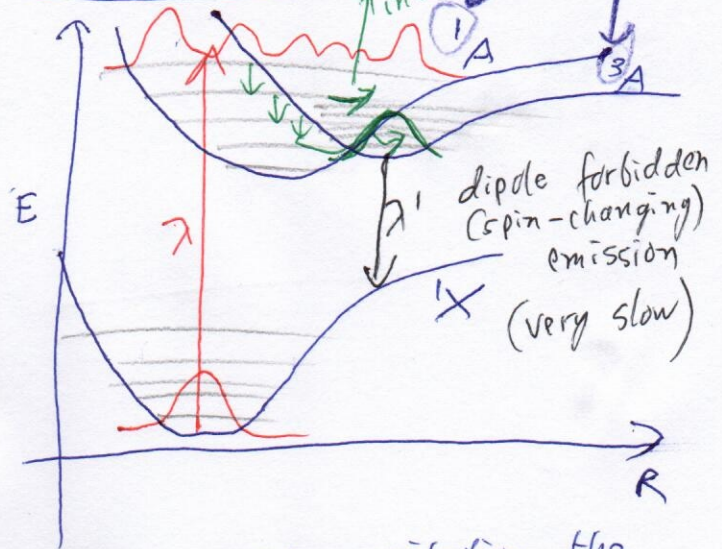 in
1
A
3
A
E
λ
λ'
dipole forbidden
(spin-changing)
emission
(very slow)
¹X
R
the